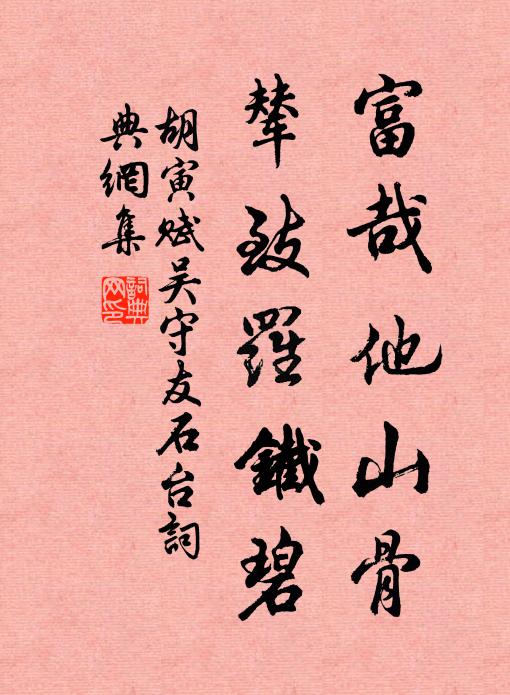 富哉他山骨
輦致羅鐵碧
胡寅賦吴守友石台詞
典網集
詞典
网印